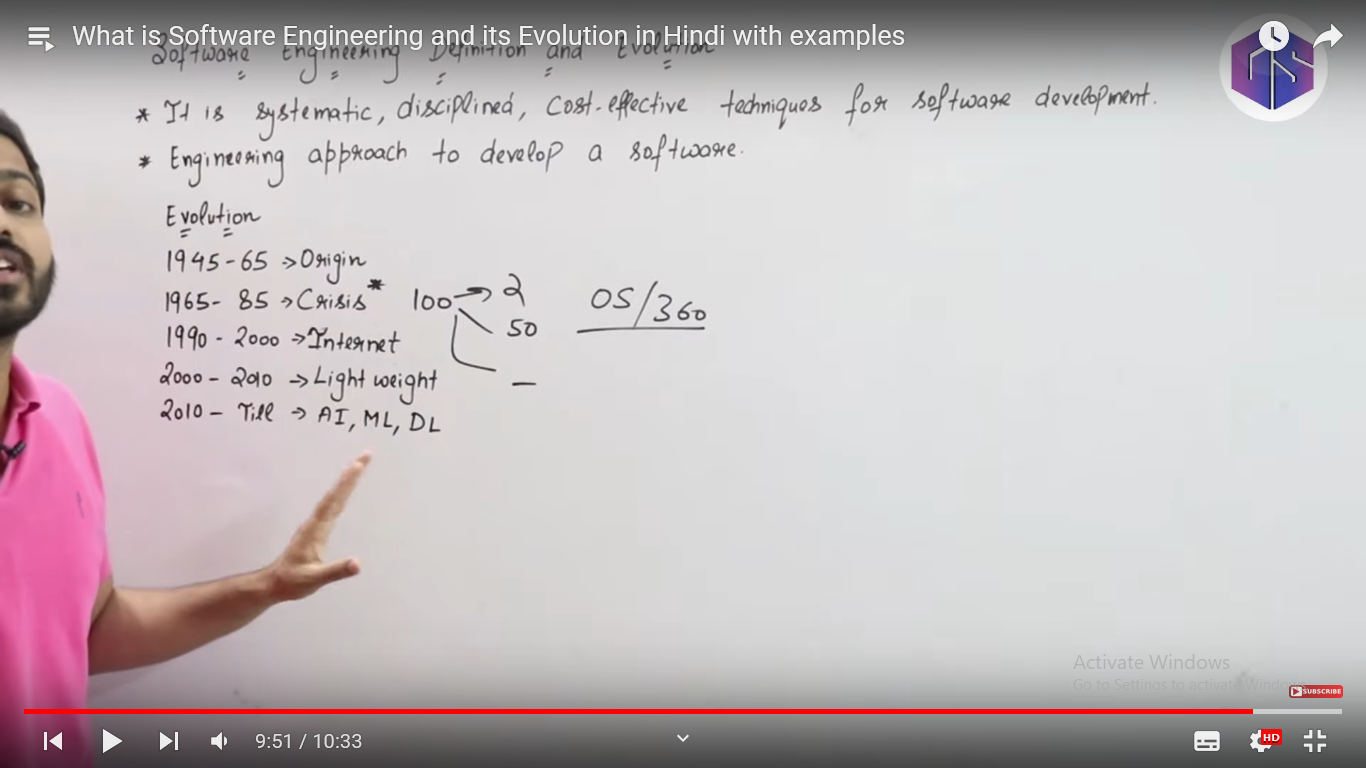 What is Software Engineering and its Evolution in Hindi with examples
Software Engineering Definition and Evolution
* It is systematic, disciplined, cost-effective techniques for software development.
* Engineering approach to develop a software.
Evolution
1945-65 → Origin
1965-85 → Crisis* 100 → 2 OS/360
50
1990-2000 → Internet
2000-2010 → Light weight
2010- Till → AI, ML, DL
Activate Windows
Go to Settings to activate Windows.
SUBSCRIBE
9:51 / 10:33
HD